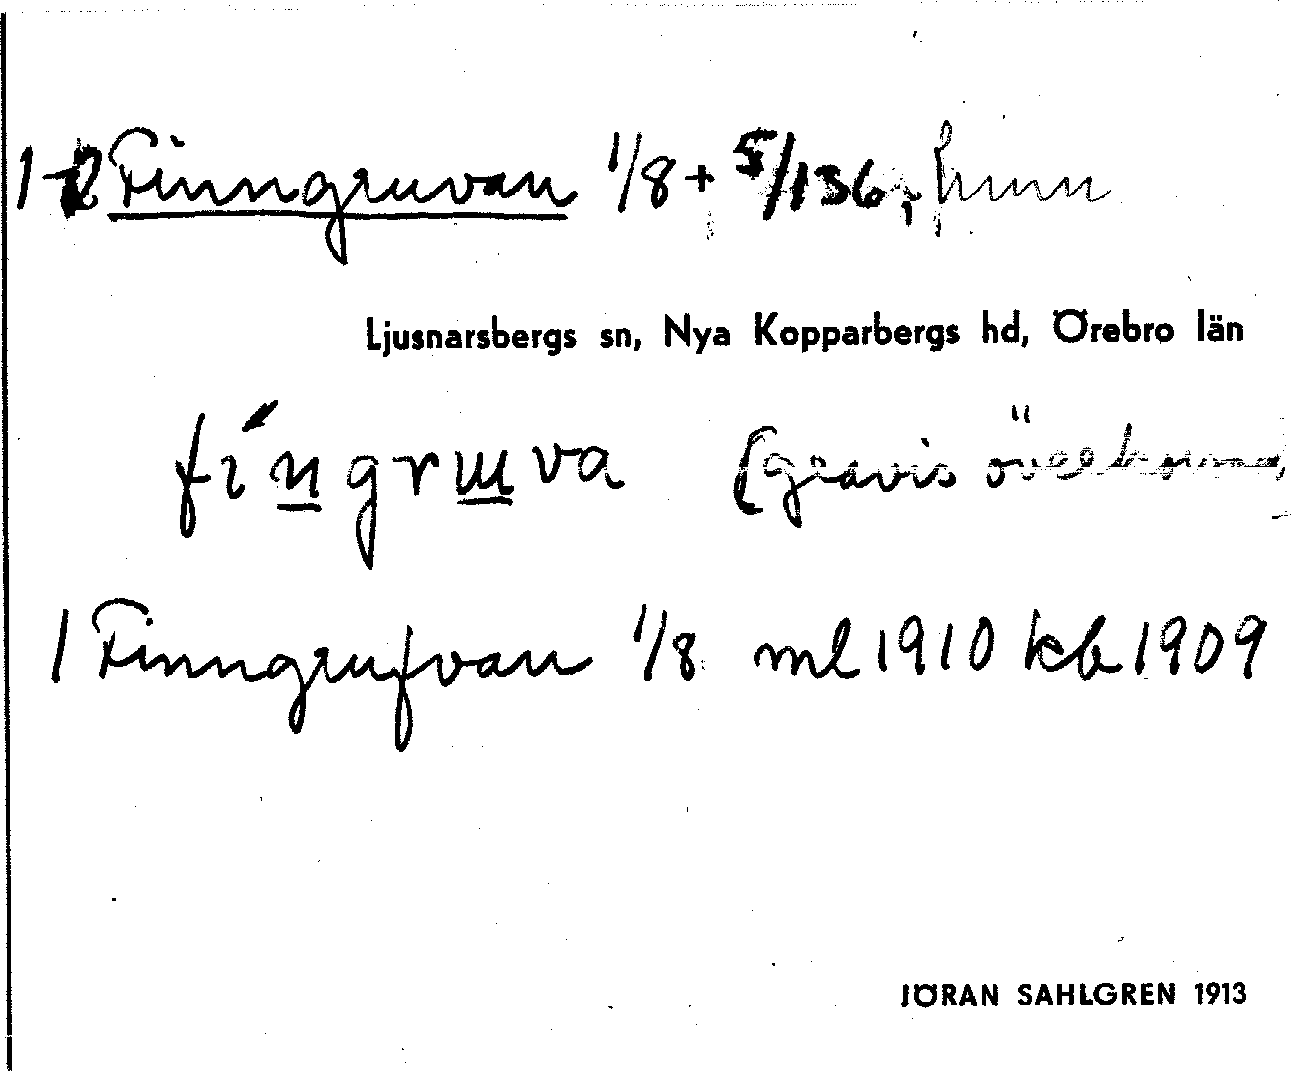 1-2 Finngruvan 1/8 + 5/136, hmn
Ljusnarsbergs sn, Nya Kopparbergs hd, Örebro län
fíngruɯva (gravis överkorsad,
1 Finngrufvan 1/8 ml 1910 kb 1909
JÖRAN SAHLGREN 1913